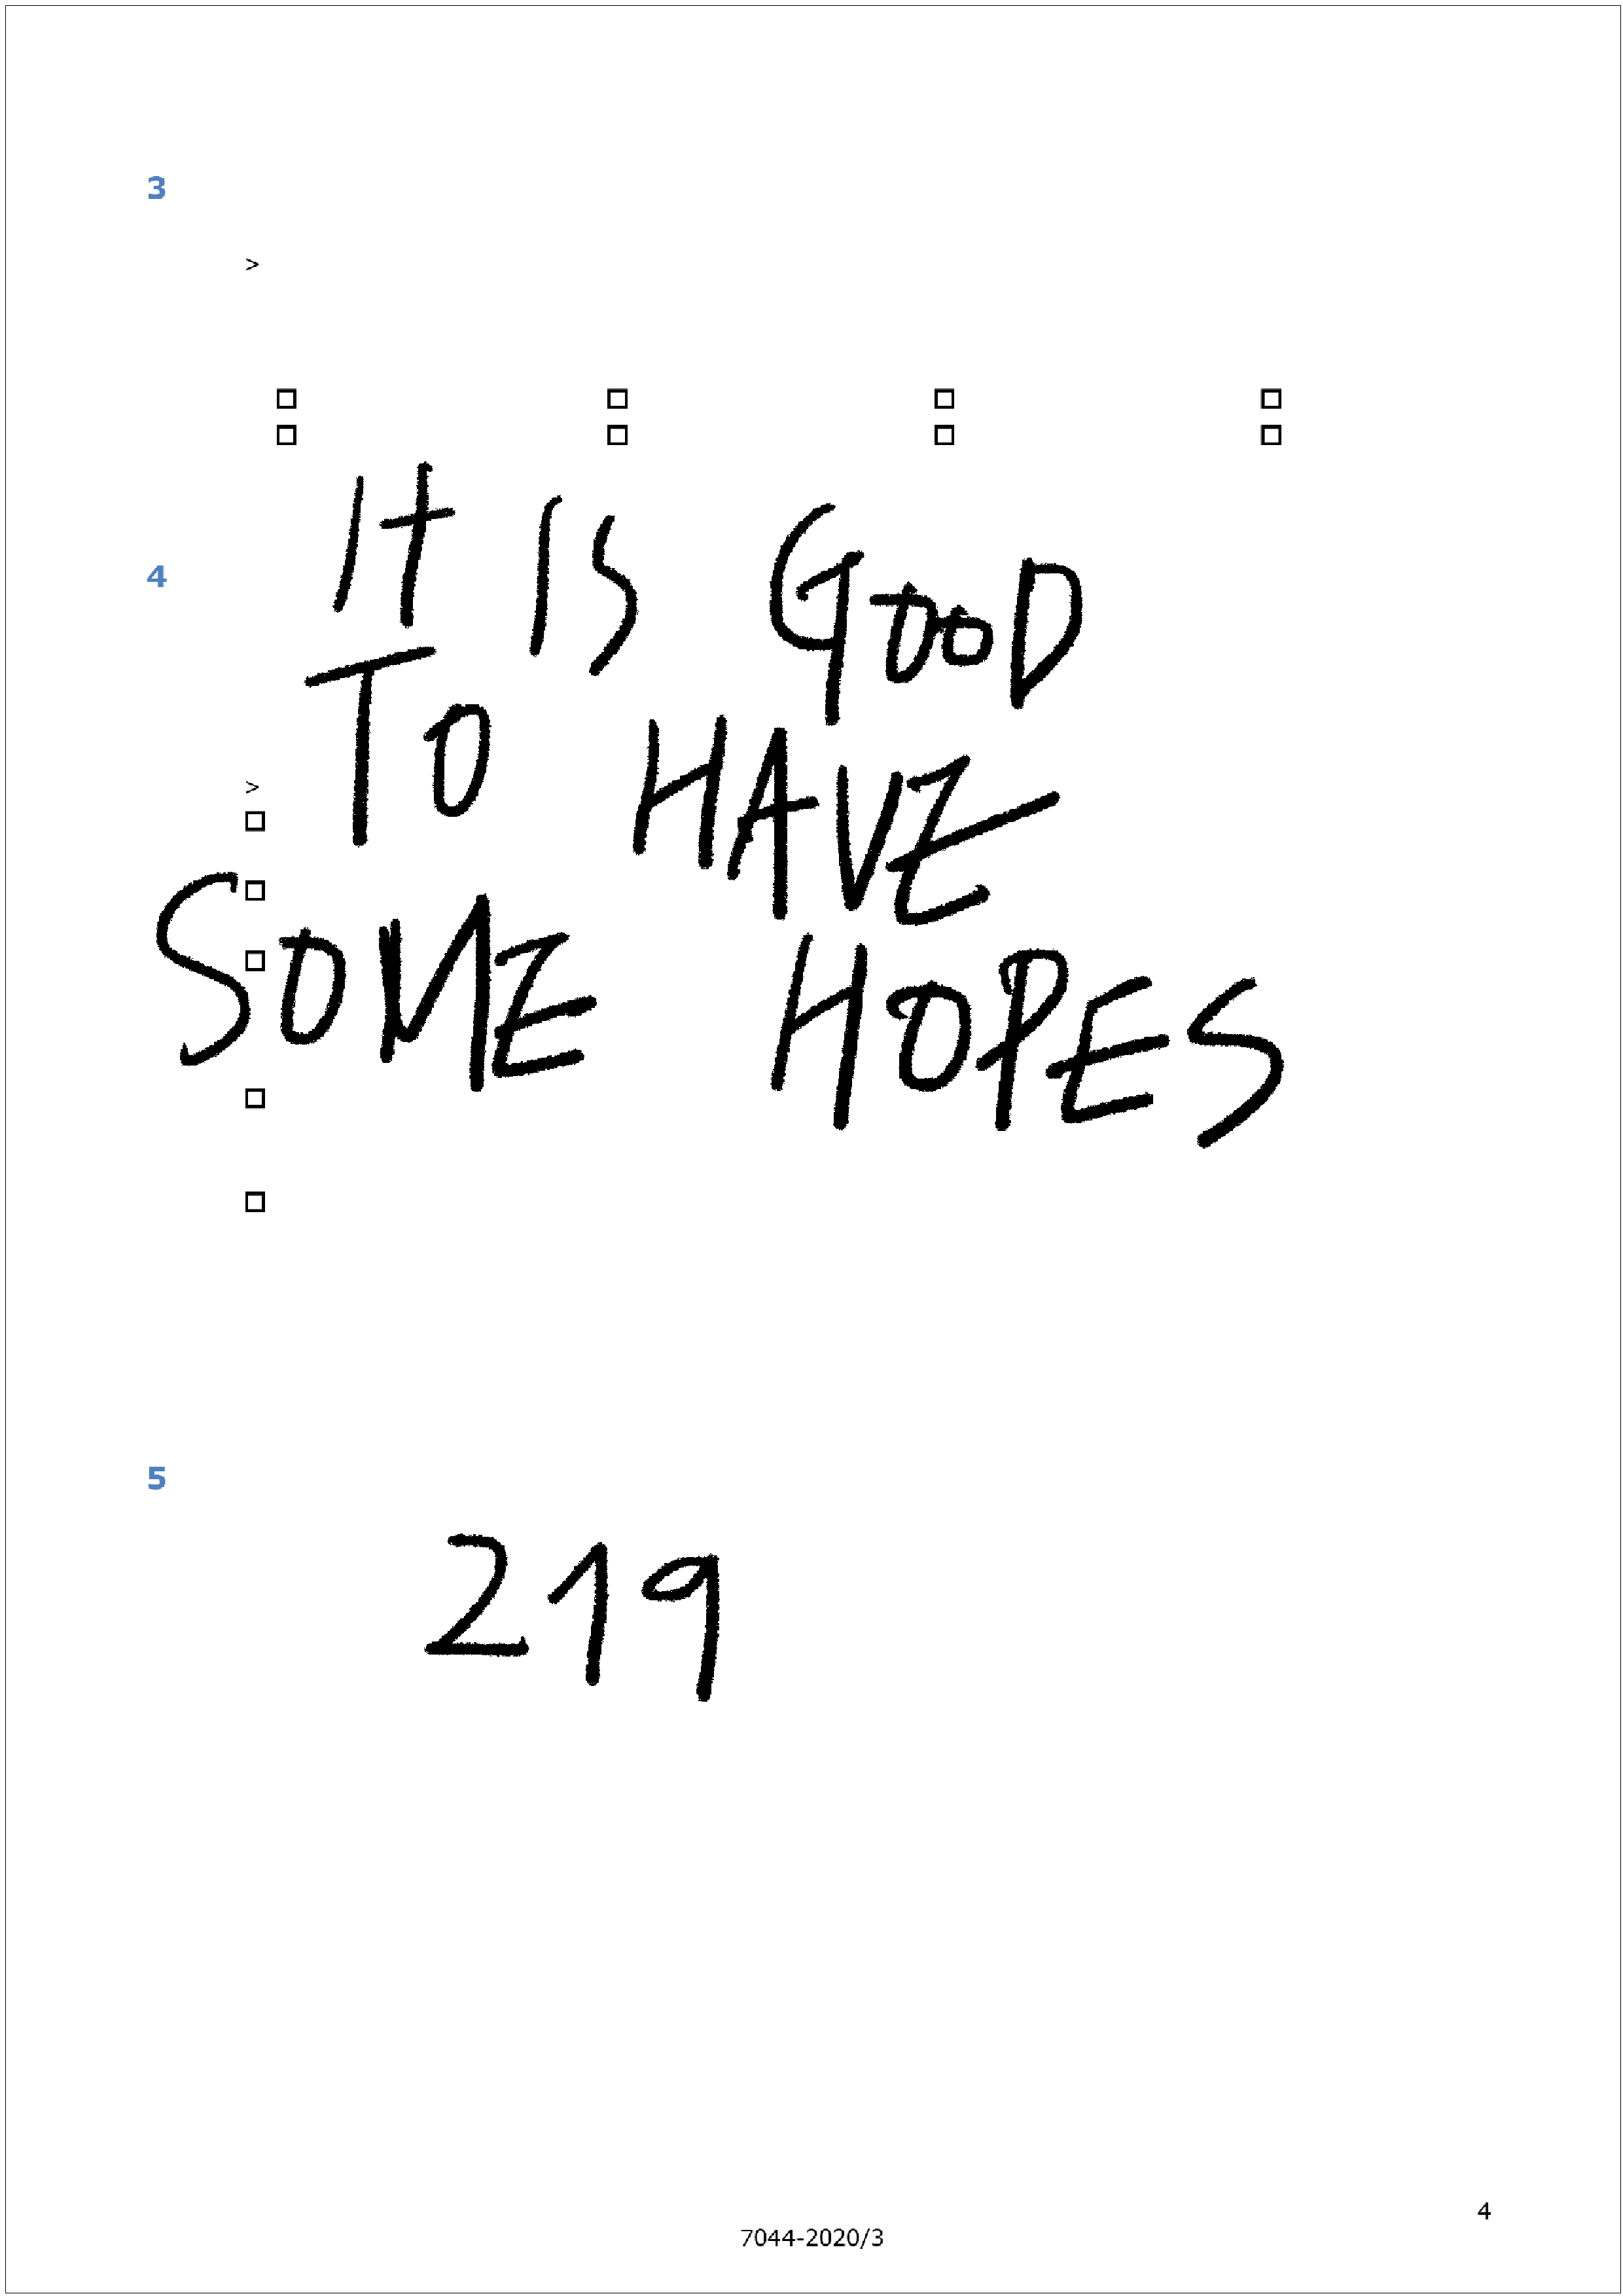 3
>
□ □ □ □
□ □ □ □
IT IS GOOD
4
TO HAVE
>
□
□
SOME HOPES
□
□
□
5
219
4
7044-2020/3